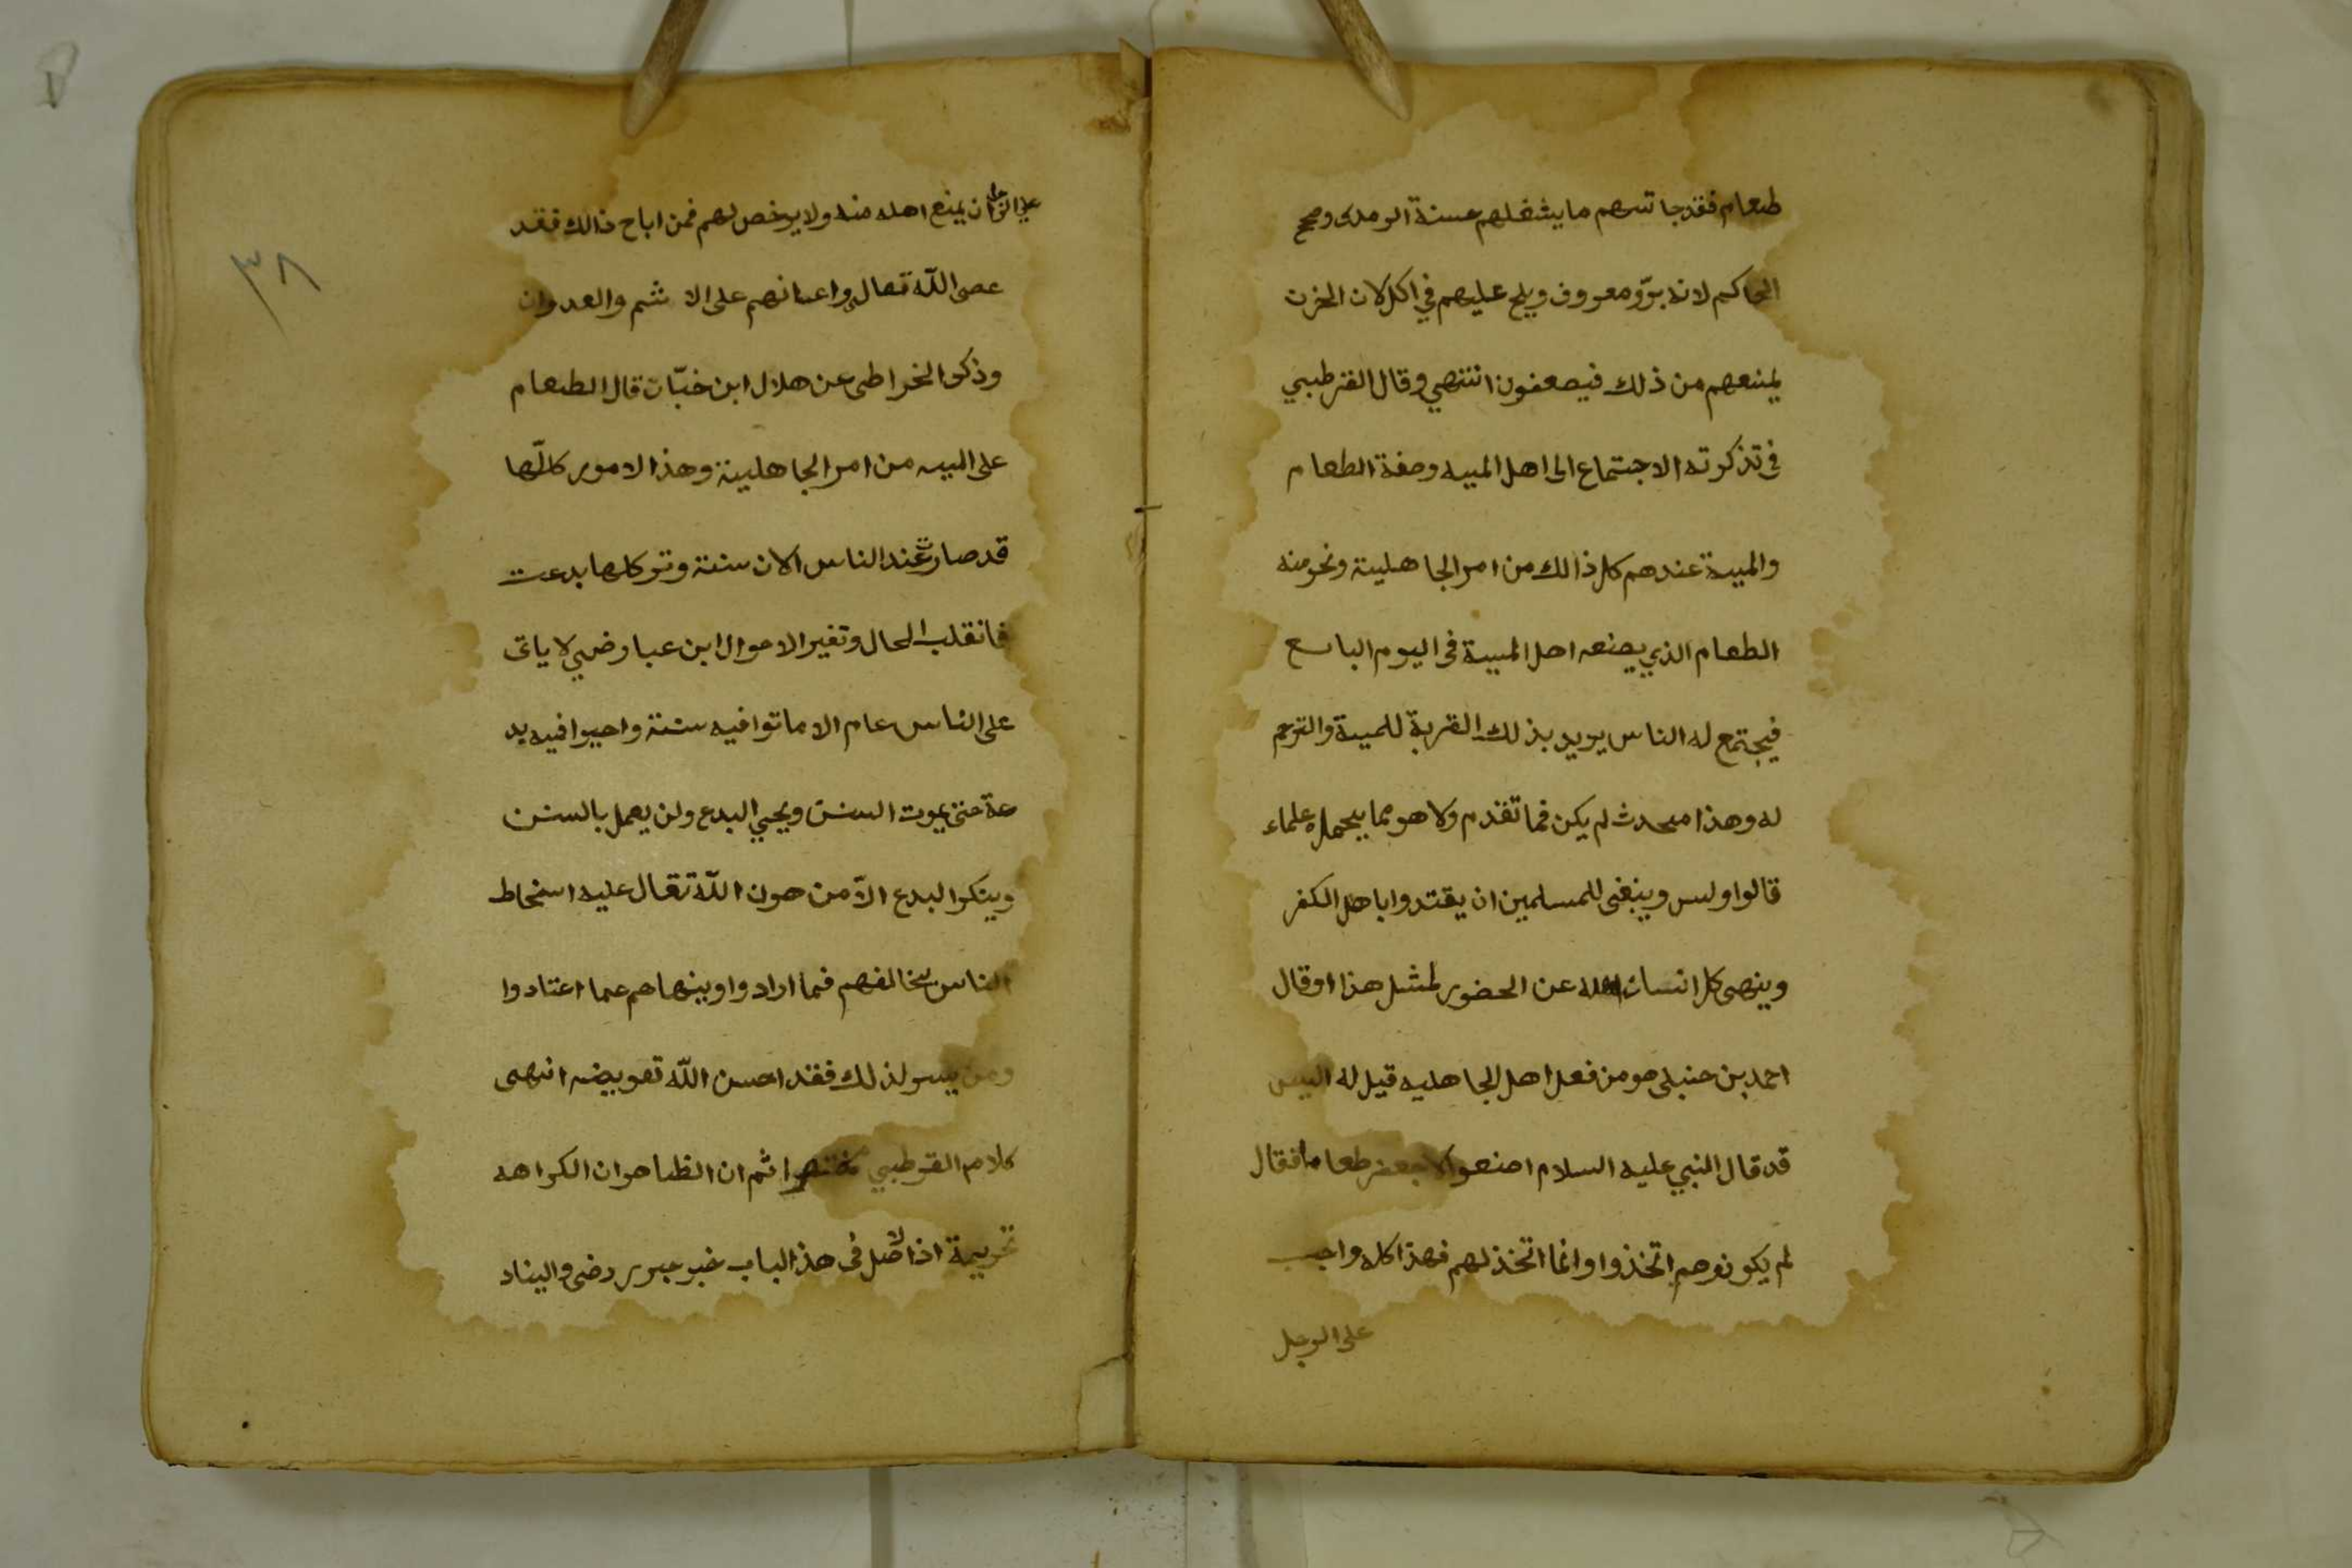 طعام فقد جاتهم ما يشغلهم حسنة الومدى وصحح
الحاكم لانه بوّ ومعروف ويلح عليهم في اكل لان الحزن
يمنعهم من ذلك فيصعفون انتهي وقال القرطبي
فى تذكرته الاجتماع الى اهل الميه وصفة الطعام
والميىة عندهم كل ذالك من امر الجاهلينة ونحو منه
الطعام الذي يصنعه اهل الميىة فى اليوم الىاىع
فيجتمع له الناس يويد بذلك القربة للميىة والترحم
له وهذا محدث لم يكن فما تقدم ولا هو مما يحمله علماء
قالوا وليس وينبغى للمسلمين ان يقتدوا باهل الكفر
وينهى كل انسان اهله عن الحضور لمثل هذا وقال
احمد بن حنبلى هو من فعل اهل الجاهليه قيل له اليس
قد قال النبي عليه السلام اصنعوا لا جعفر طعاما فقال
لم يكونوهم اتخذوا وانما اتخذ لهم فهذا كله واجب
على الوجل
على الوجل ان يمنع اهله منه ولا يوخص لهم فمن اباح ذالك فقد
عصى اللّه تعالى واعانهم على الا ثم والعدوان
وذكر الخراطى عن هلال ابن خبّات قال الطعام
على الميه من امر الجاهلينة وهذ الامور كلّها
قد صارت عند الناس الان سنة وتوكلها بدعت
فانقلب الحال وتغير الاحوال ابن عبا وضي لا ياتى
على الناس عام الا ماتوا فيه سنة واحيوا فيه بد
عة حتى يموت السنن ويحيي البدع ولن يعمل بالسنن
وينكوا لبدع الاّ من هون اللّه تعال عليه اسخاط
الناس بخالفهم فيما ارادوا وينهاهم عما اعتادوا
ومن يىىو لذلك فقد احسن اللّه تعويضه انتهى
كلام القوطبي مختصرا ثم ان الظاهو ان الكراهه
تحريمة اذ الاصل فى هذ الباب خبر جرير رضى والىناد
٣٨